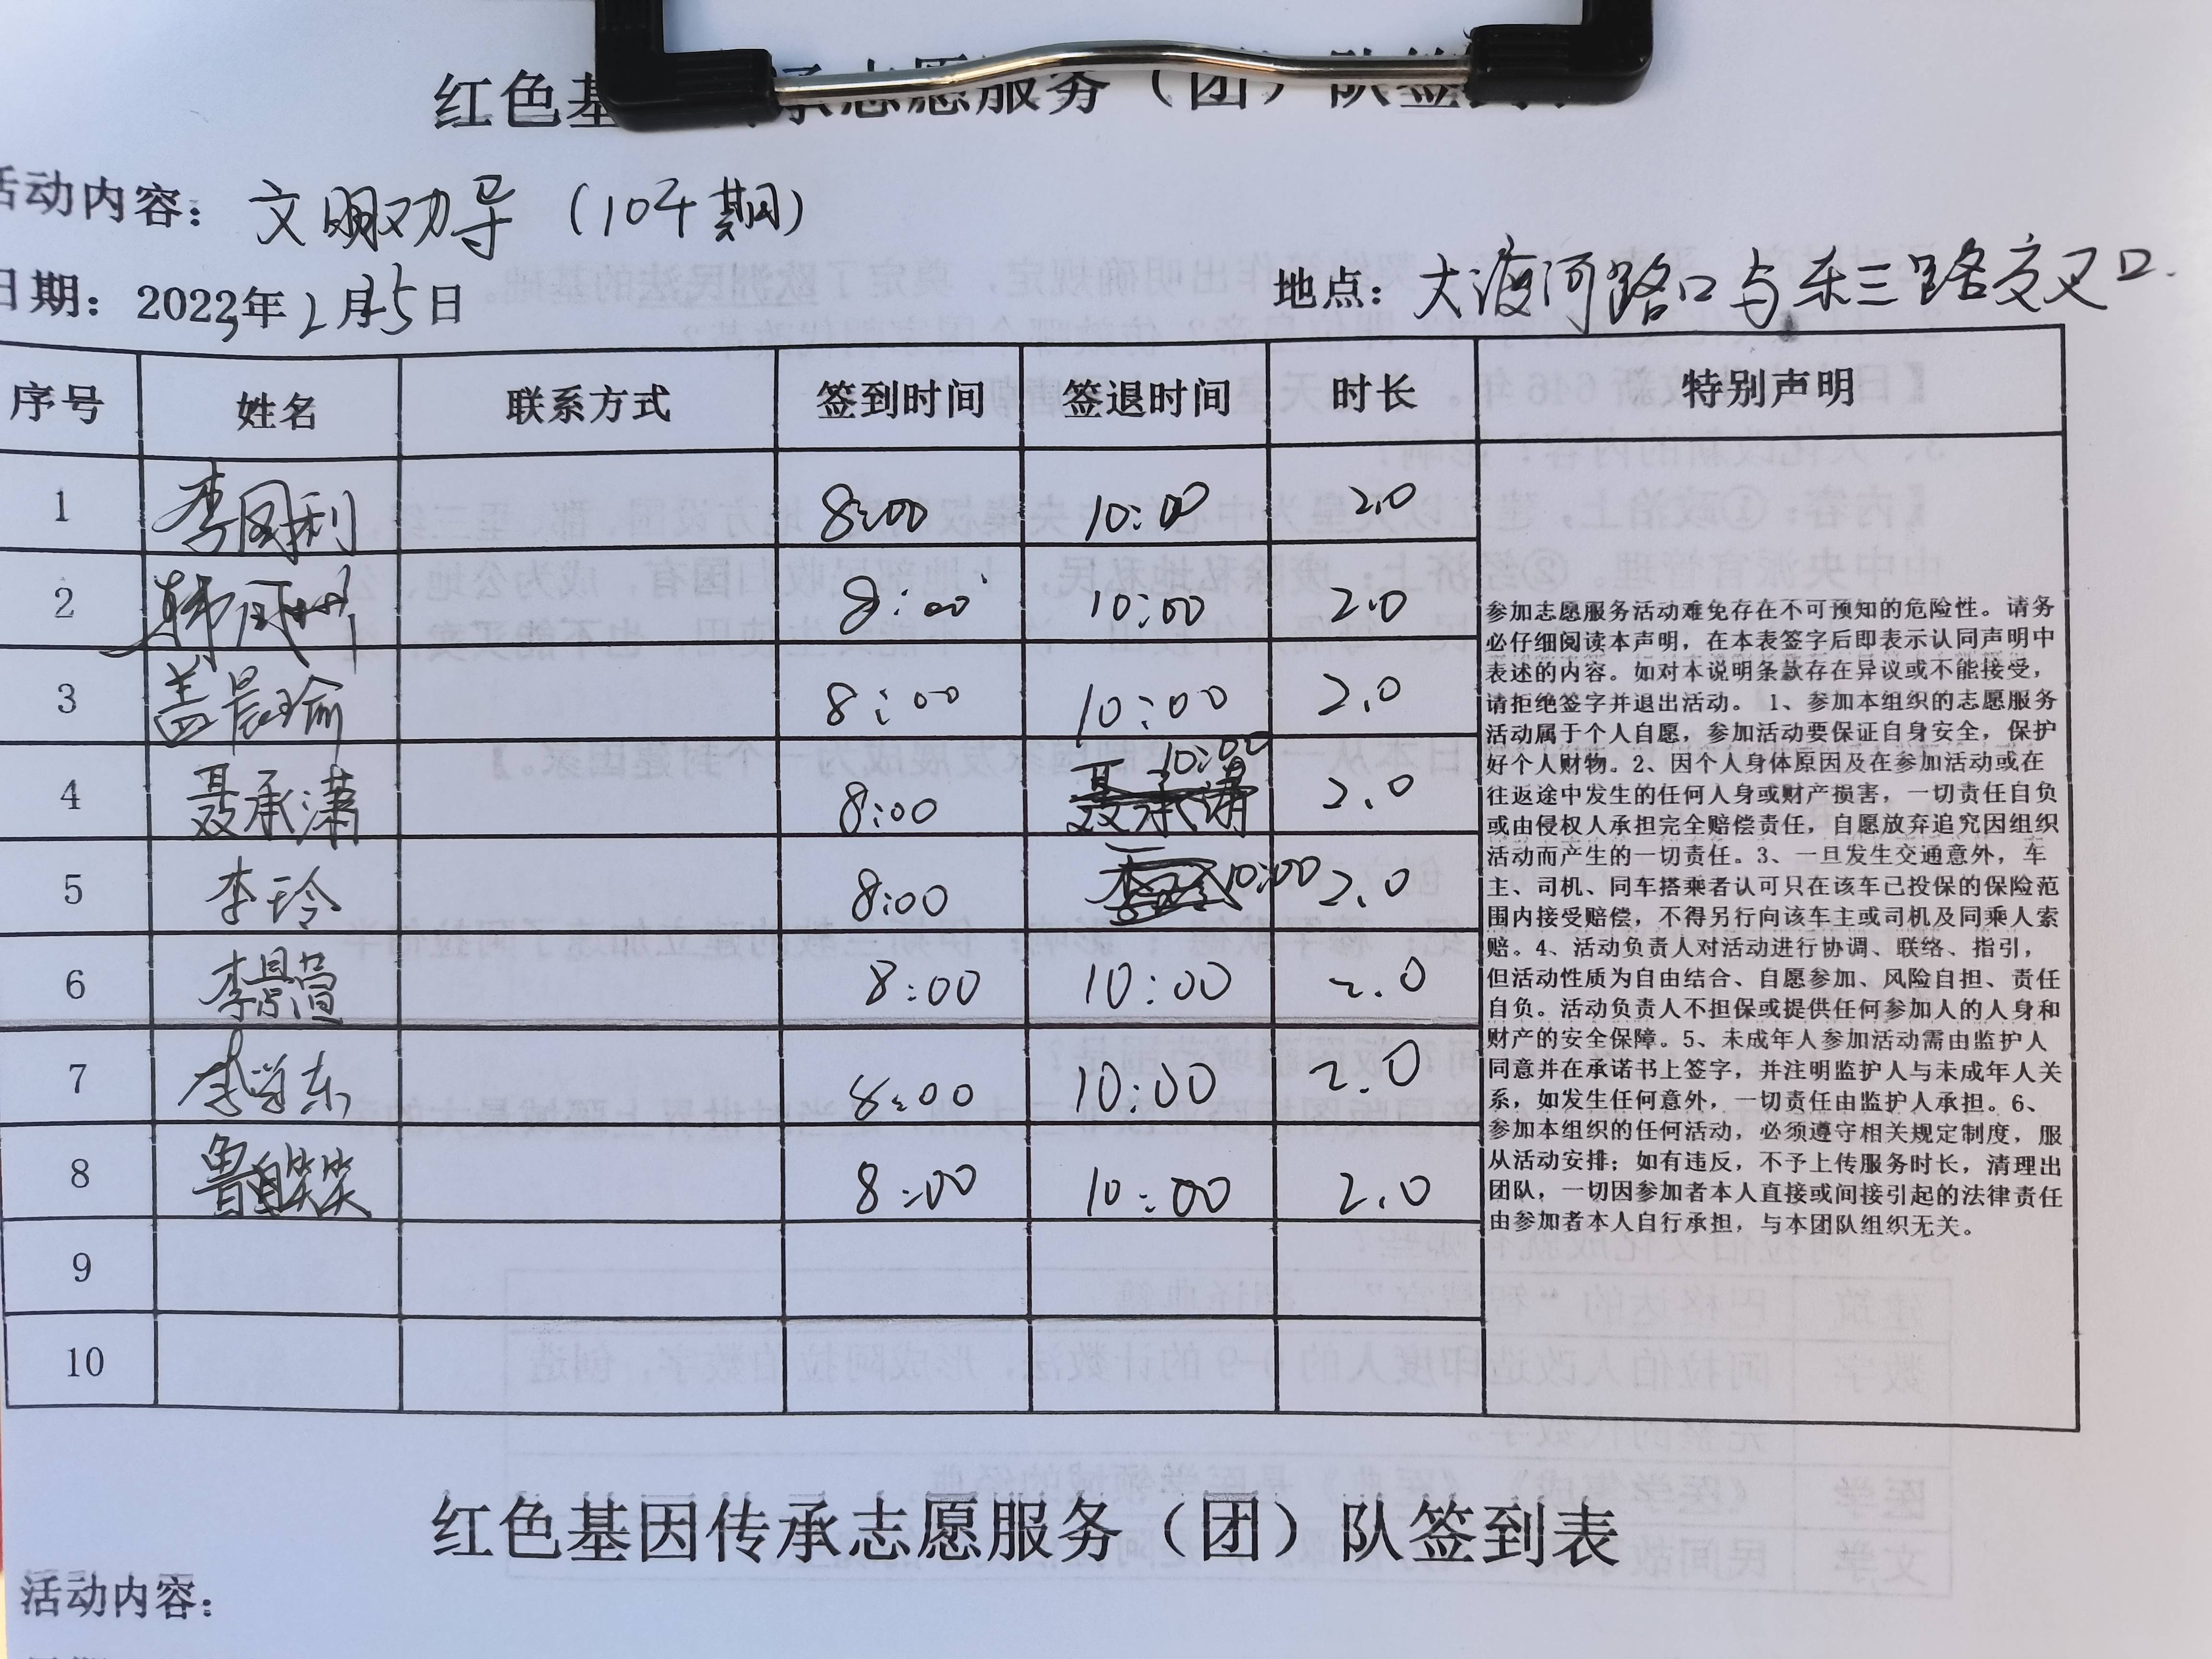 红色基 承志愿服务（团）队签到
活动内容：文明劝导（104期）
日期：2023年2月5日 地点：大渡河路口与东三路交叉口.
序号 姓名 联系方式 签到时间 签退时间 时长 特别声明
1 李国利 8:00 10:00 2.0
2 韩 8:00 10:00 2.0
3 盖晨瑜 8:00 10:00 2.0
4 聂承潇 8:00 聂承潇 10:00 2.0
5 李玲 8:00 10:00 2.0
6 李景萱 8:00 10:00 2.0
7 李学东 8:00 10:00 2.0
8 鲁自笑笑 8:00 10:00 2.0
9
10
参加志愿服务活动难免存在不可预知的危险性。请务
必仔细阅读本声明，在本表签字后即表示认同声明中
表述的内容。如对本说明条款存在异议或不能接受，
请拒绝签字并退出活动。 1、参加本组织的志愿服务
活动属于个人自愿，参加活动要保证自身安全，保护
好个人财物。2、因个人身体原因及在参加活动或在
往返途中发生的任何人身或财产损害，一切责任自负
或由侵权人承担完全赔偿责任，自愿放弃追究因组织
活动而产生的一切责任。3、一旦发生交通意外，车
主、司机、同车搭乘者认可只在该车已投保的保险范
围内接受赔偿，不得另行向该车主或司机及同乘人索
赔。4、活动负责人对活动进行协调、联络、指引，
但活动性质为自由结合、自愿参加、风险自担、责任
自负。活动负责人不担保或提供任何参加人的人身和
财产的安全保障。5、未成年人参加活动需由监护人
同意并在承诺书上签字，并注明监护人与未成年人关
系，如发生任何意外，一切责任由监护人承担。6、
参加本组织的任何活动，必须遵守相关规定制度，服
从活动安排；如有违反，不予上传服务时长，清理出
团队，一切因参加者本人直接或间接引起的法律责任
由参加者本人自行承担，与本团队组织无关。
红色基因传承志愿服务（团）队签到表
活动内容：